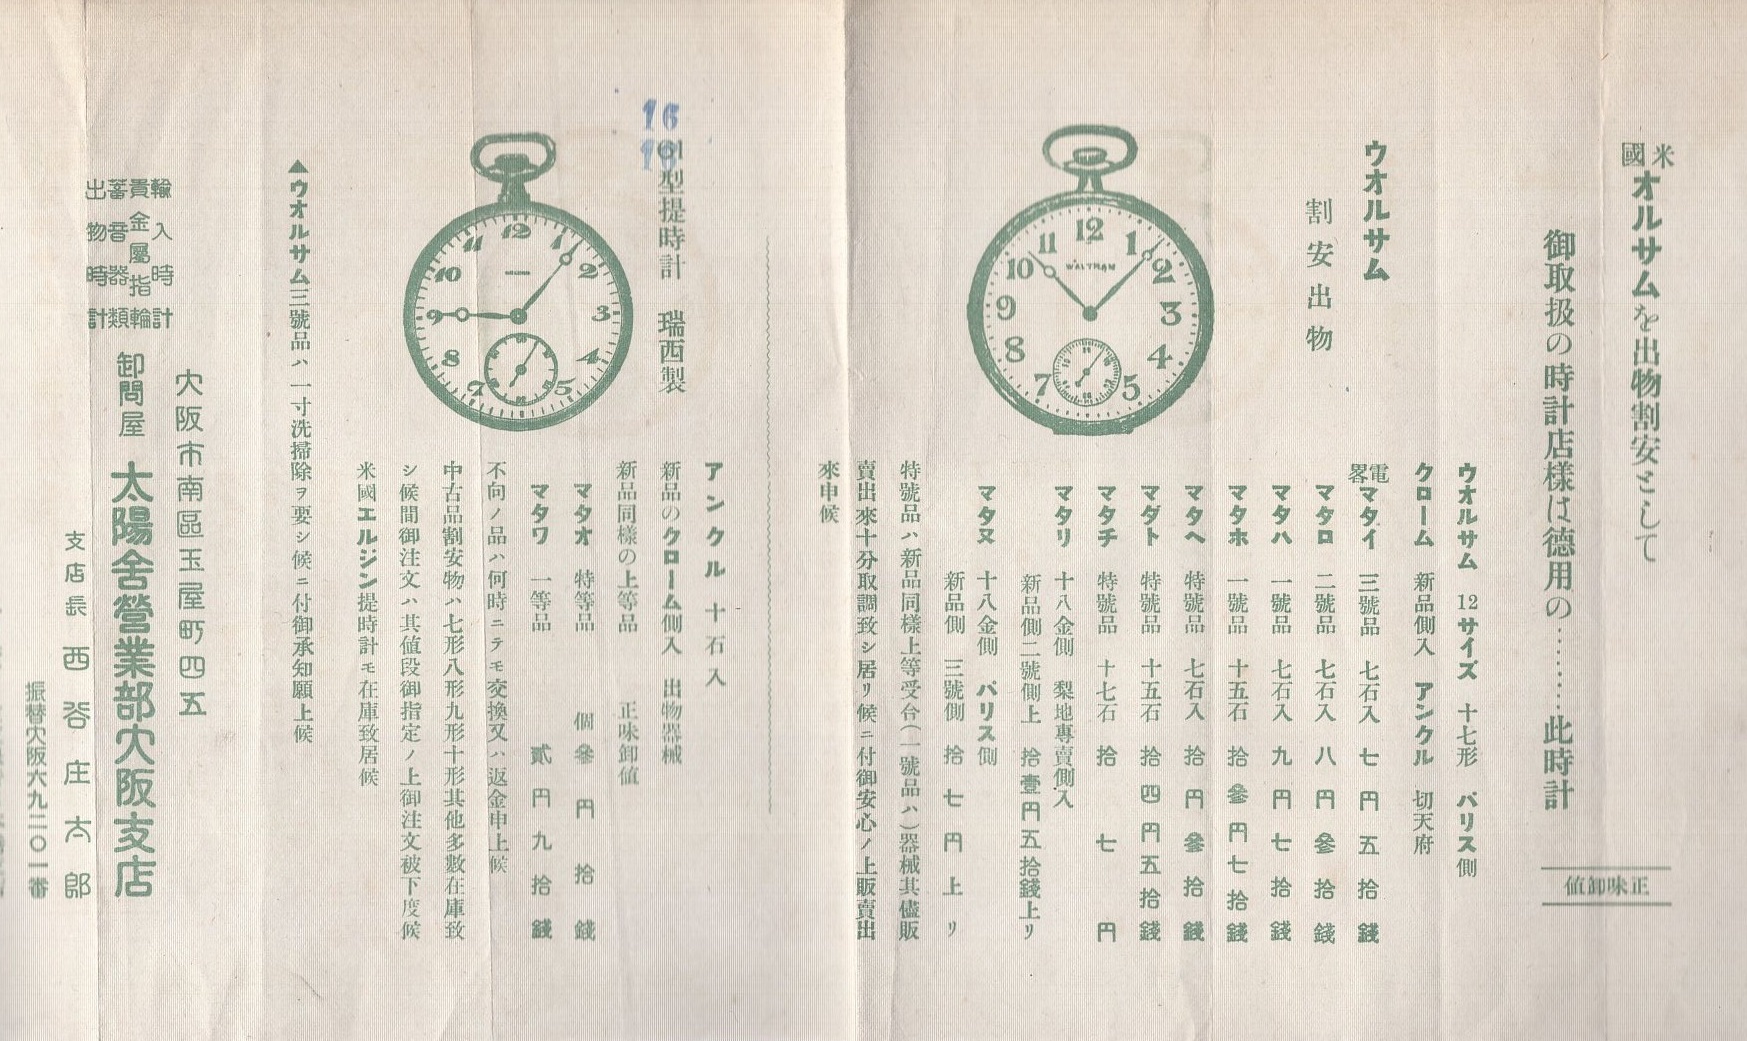 米國オルサムを出物割安として
御取扱の時計店樣は德用の……此時計
正味卸値
ウオルサム
割安出物
ウオルサム 12サイズ 十七形 パリス側
クローム 新品側入 アンクル 切天府
電畧 マタイ 三號品 七石入 七円五拾錢
マタロ 二號品 七石入 八円參拾錢
マタハ 一號品 七石入 九円七拾錢
マタホ 一號品 十五石 拾參円七拾錢
マタヘ 特號品 七石入 拾円參拾錢
マダト 特號品 十五石 拾四円五拾錢
マタチ 特號品 十七石 拾七円
マタリ 十八金側 梨地專賣側入
新品側二號側上 拾壹円五拾錢上リ
マタヌ 十八金側 パリス側
新品側 三號側 拾七円上リ
特號品ハ新品同樣上等受合(一號品ハ)器械其儘販
賣出來十分取調致シ居リ候ニ付御安心ノ上販賣出
來申候
WALTHAM
12 1 2 3 4 5 7 8 9 10 11
16
16
型提時計 瑞西製
アンクル 十石入
新品のクローム側入 出物器械
新品同樣の上等品 正味卸値
マタオ 特等品 個 參円拾錢
マタワ 一等品 貳円九拾錢
不向ノ品ハ何時ニテモ交換又ハ返金申上候
中古品割安物ハ七形八形九形十形其他多數在庫致
シ候間御注文ハ其値段御指定ノ上御注文被下度候
米國エルジン提時計モ在庫致居候
12 1 2 3 4 5 7 8 9 10 11
▲ウオルサム三號品ハ一寸洗掃除ヲ要シ候ニ付御承知願上候
大阪市南區玉屋町四五
輸入時計
貴金屬指輪
蓄音器類
出物時計
卸問屋 太陽舍營業部大阪支店
支店長 西谷庄太郎
振替大阪六九二〇一番